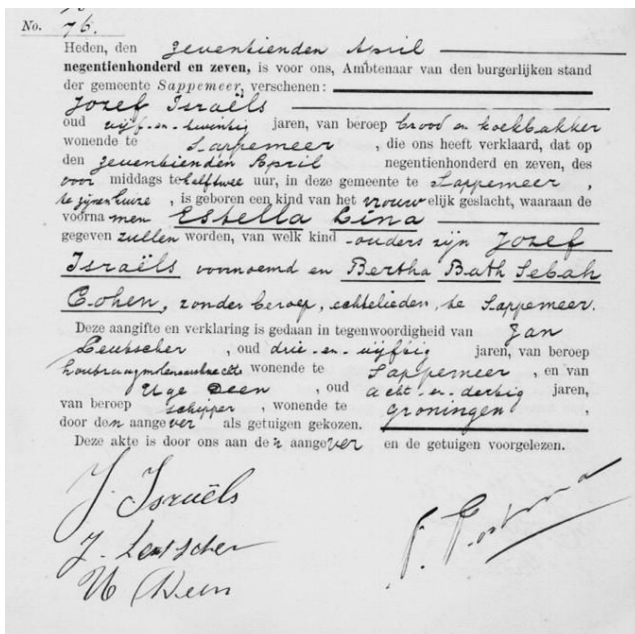 No. 76.
Heden, den zeventienden April
negentienhonderd en zeven, is voor ons, Ambtenaar van den burgerlijken stand
der gemeente Sappemeer, verschenen:
Jozef Israëls
oud vijf-en-twintig jaren, van beroep brood en koekbakker
wonende te Sappemeer, die ons heeft verklaard, dat op
den zeventienden April negentienhonderd en zeven, des
voor middags te half twee uur, in deze gemeente te Sappemeer,
te zijnen huize, is geboren een kind van het vrouwelijk geslacht, waaraan de
voornamen Estella Lina
gegeven zullen worden, van welk kind ouders zijn Jozef
Israëls voornoemd en Bertha Bath Sebah
Cohen, zonder beroep, echtelieden, te Sappemeer.
Deze aangifte en verklaring is gedaan in tegenwoordigheid van Jan
Leutscher, oud drie-en-vijftig jaren, van beroep
wonende te Sappemeer, en van
Uge Deen, oud acht-en-dertig jaren,
van beroep schipper, wonende te Groningen,
door den aangever als getuigen gekozen.
Deze akte is door ons aan den aangever en de getuigen voorgelezen.
J. Israëls
J. Leutscher
U Deen